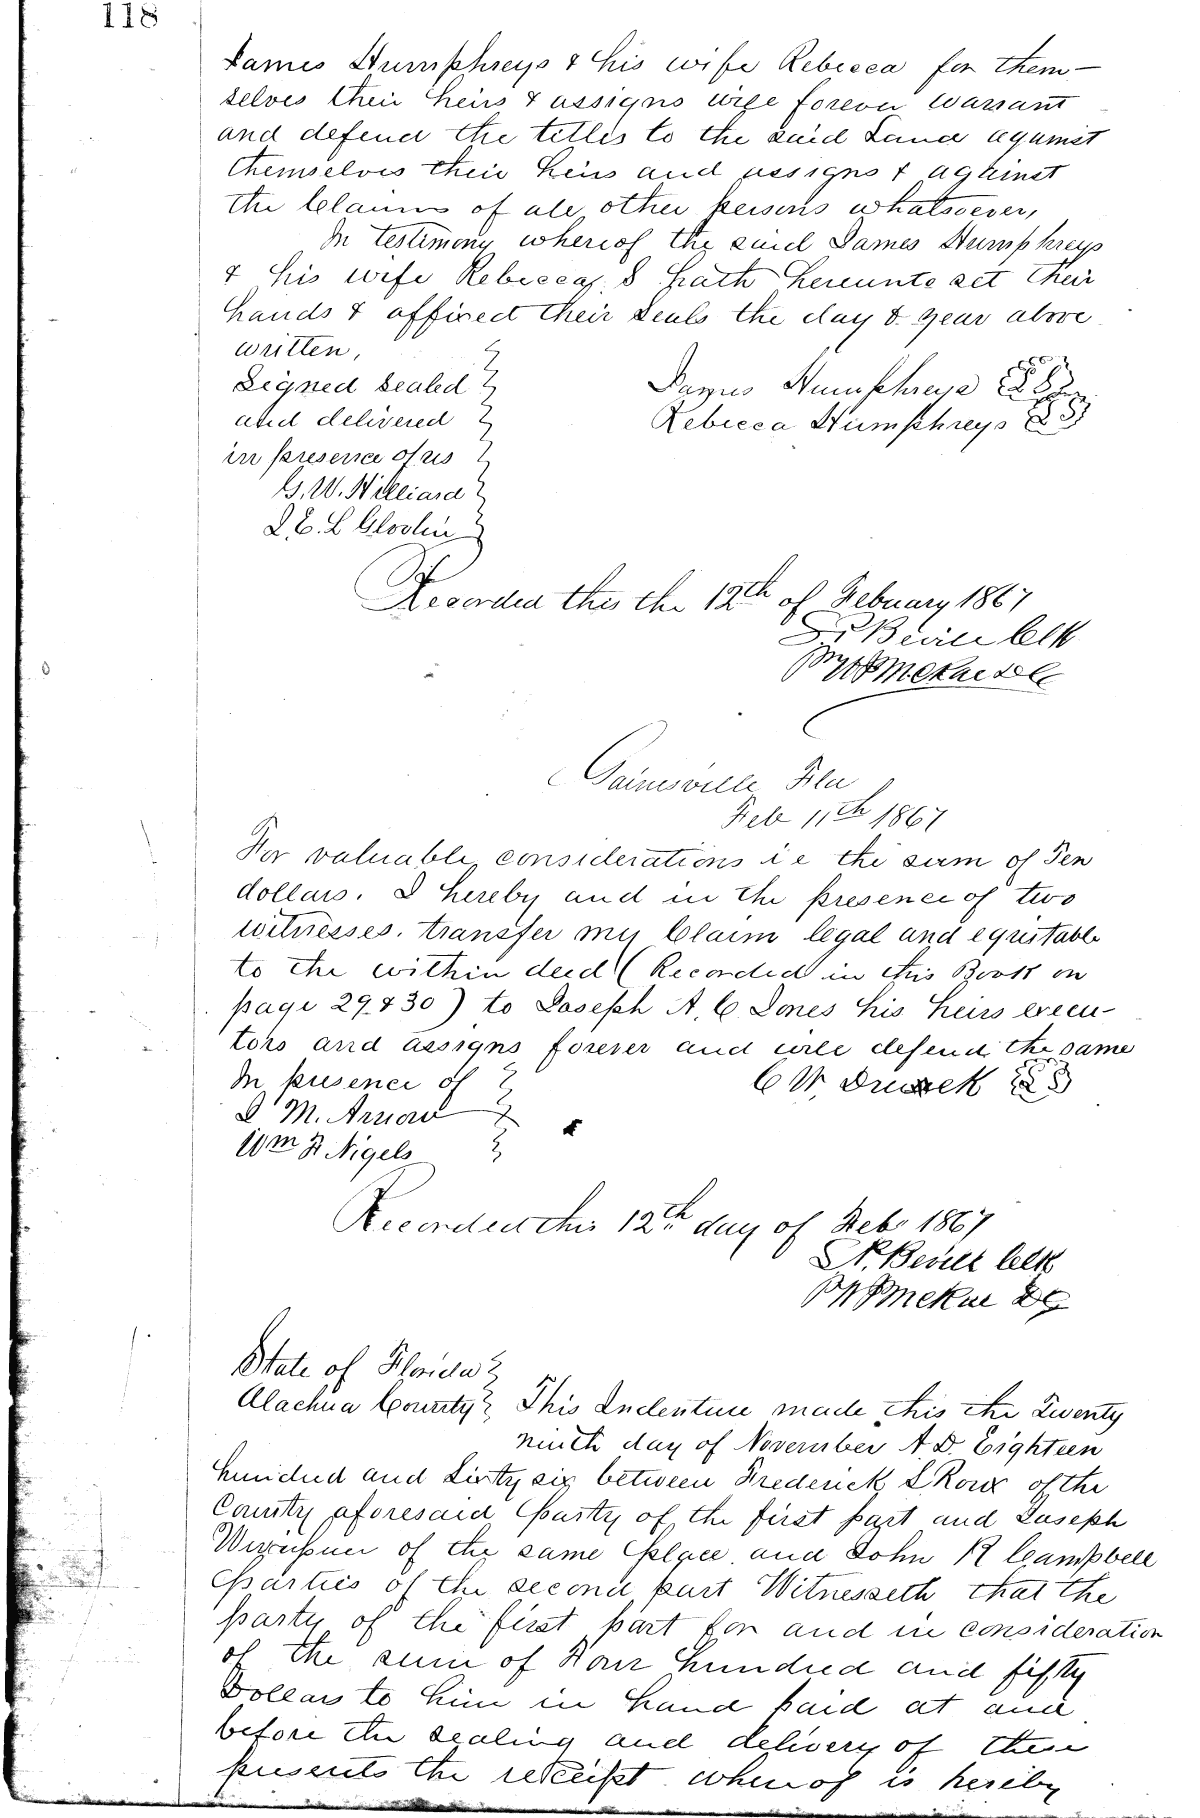 118
James Humphreys & his wife Rebecca for them-
selves their heirs & assigns will forever warrant
and defend the titles to the said Land against
themselves their heirs and assigns & against
the Claims of all other persons whatsoever,
In testimony whereof the said James Humphreys
& his wife Rebecca hath hereunto set their
hands & affixed their seals the day & year above
written,
Signed sealed
and delivered
in presence of us
G. W. Hilliard
James Humphreys
Rebecca Humphreys
Recorded this the 12th of Febuary 1867
Bevill Clk
Gainesville Fla
Feb 11th 1867
For valuable considerations i e the sum of Ten
dollars. I hereby and in the presence of two
witnesses. transfer my Claim legal and equitable
to the within deed (Recorded in this Book on
page 29 & 30) to Joseph A. C Jones his heirs execu-
tors and assigns forever and will defend the same
In presence of
C W.
M. Arnow
Wm Nigels
Recorded this 12th day of Feb. 1867
Bevill Clk
State of Florida
Alachua County This Indenture made this the Twenty
ninth day of November A.D. Eighteen
hundred and Sixty six between Frederick of the
County aforesaid party of the first part and Joseph
of the same place and John R Campbell
parties of the second part Witnesseth that the
party of the first part for and in consideration
of the sum of Four hundred and fifty
Dollars to him in hand paid at and
before the sealing and delivery of these
presents the receipt whereof is hereby